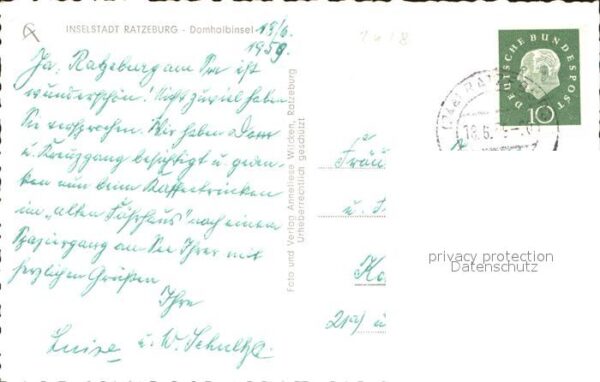 INSELSTADT RATZEBURG - Domhalbinsel
18/6.
1959.
Ja, Ratzeburg am See ist
wunderschön! Nicht zuviel haben
Sie versprochen. Wir haben Dom
u. Kreuzgang besichtigt u. geden-
ken nun beim Kaffeetrinken
im „alten Fährhaus" nach einem
Spaziergang am See Ihrer mit
herzlichen Grüßen
Ihre
Luise u. W. Schultz
Foto und Verlag Anneliese Wilcken, Ratzeburg
Urheberrechtlich geschützt
DEUTSCHE BUNDESPOST
10
18.6.
Fräu
u. F
privacy protection
Datenschutz